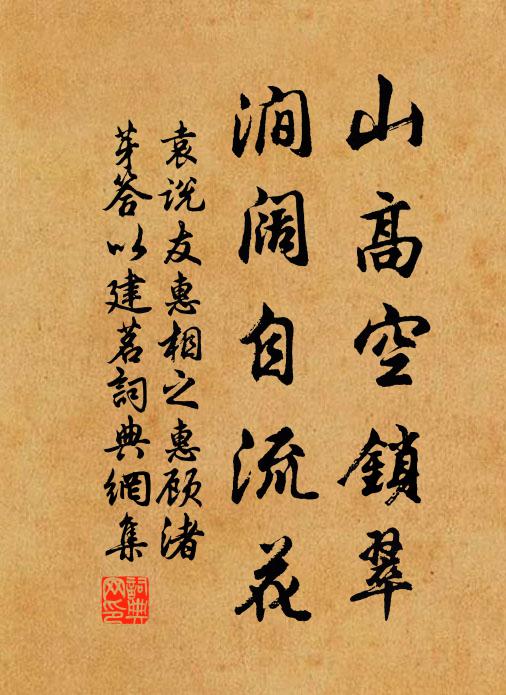 山高空鎖翠
澗阔自流花
袁说友惠相之惠顾渚
芽答以建茗詞典網集
詞典網印